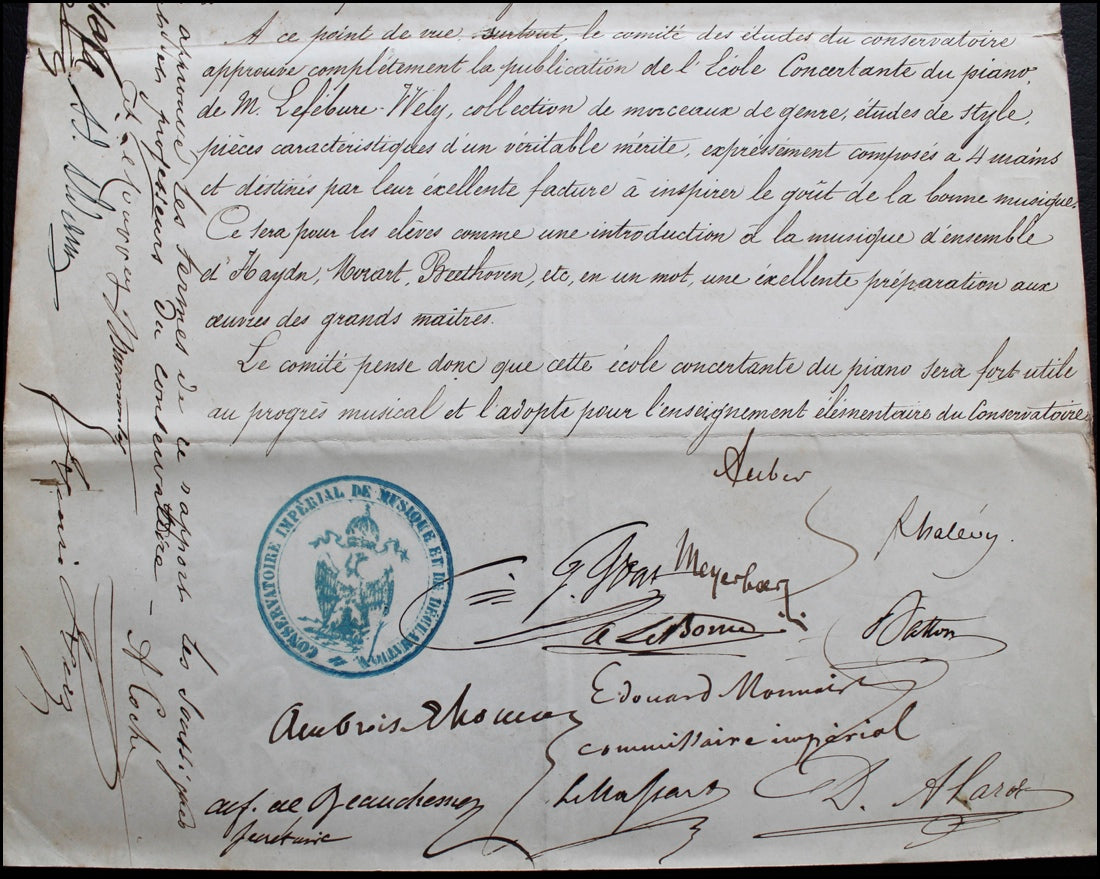 A ce point de vue surtout, le comité des études du conservatoire
approuve complètement la publication de l'École Concertante du piano,
de M. Lefébure-Wély, collection de morceaux de genre, études de style,
pièces caractéristiques d'un véritable mérite, expressément composés a 4 mains
et destinés par leur éxellente facture à inspirer le goût de la bonne musique.
Ce sera pour les élèves comme une introduction à la musique d'ensemble
d'Haydn, Mozart, Beethoven, etc, en un mot, une éxellente préparation aux
œuvres des grands maîtres.
Le comité pense donc que cette école concertante du piano sera fort utile
au progrès musical et l'adopte pour l'enseignement élémentaire du Conservatoire
Auber
F halévy
Meyerbeer
Batton
A Le Borne
Edouard Monnais
commissaire impérial
Ambroise Thomas
L. Massart
D. Alard
de Beauchesne
secrétaire
CONSERVATOIRE IMPÉRIAL DE MUSIQUE ET DE DÉCLAMATION
approuvé les termes de ce rapport les soussignés
professeurs du conservatoire –
A Coche
F. Le Couppey
Marmontel
Henri Herz